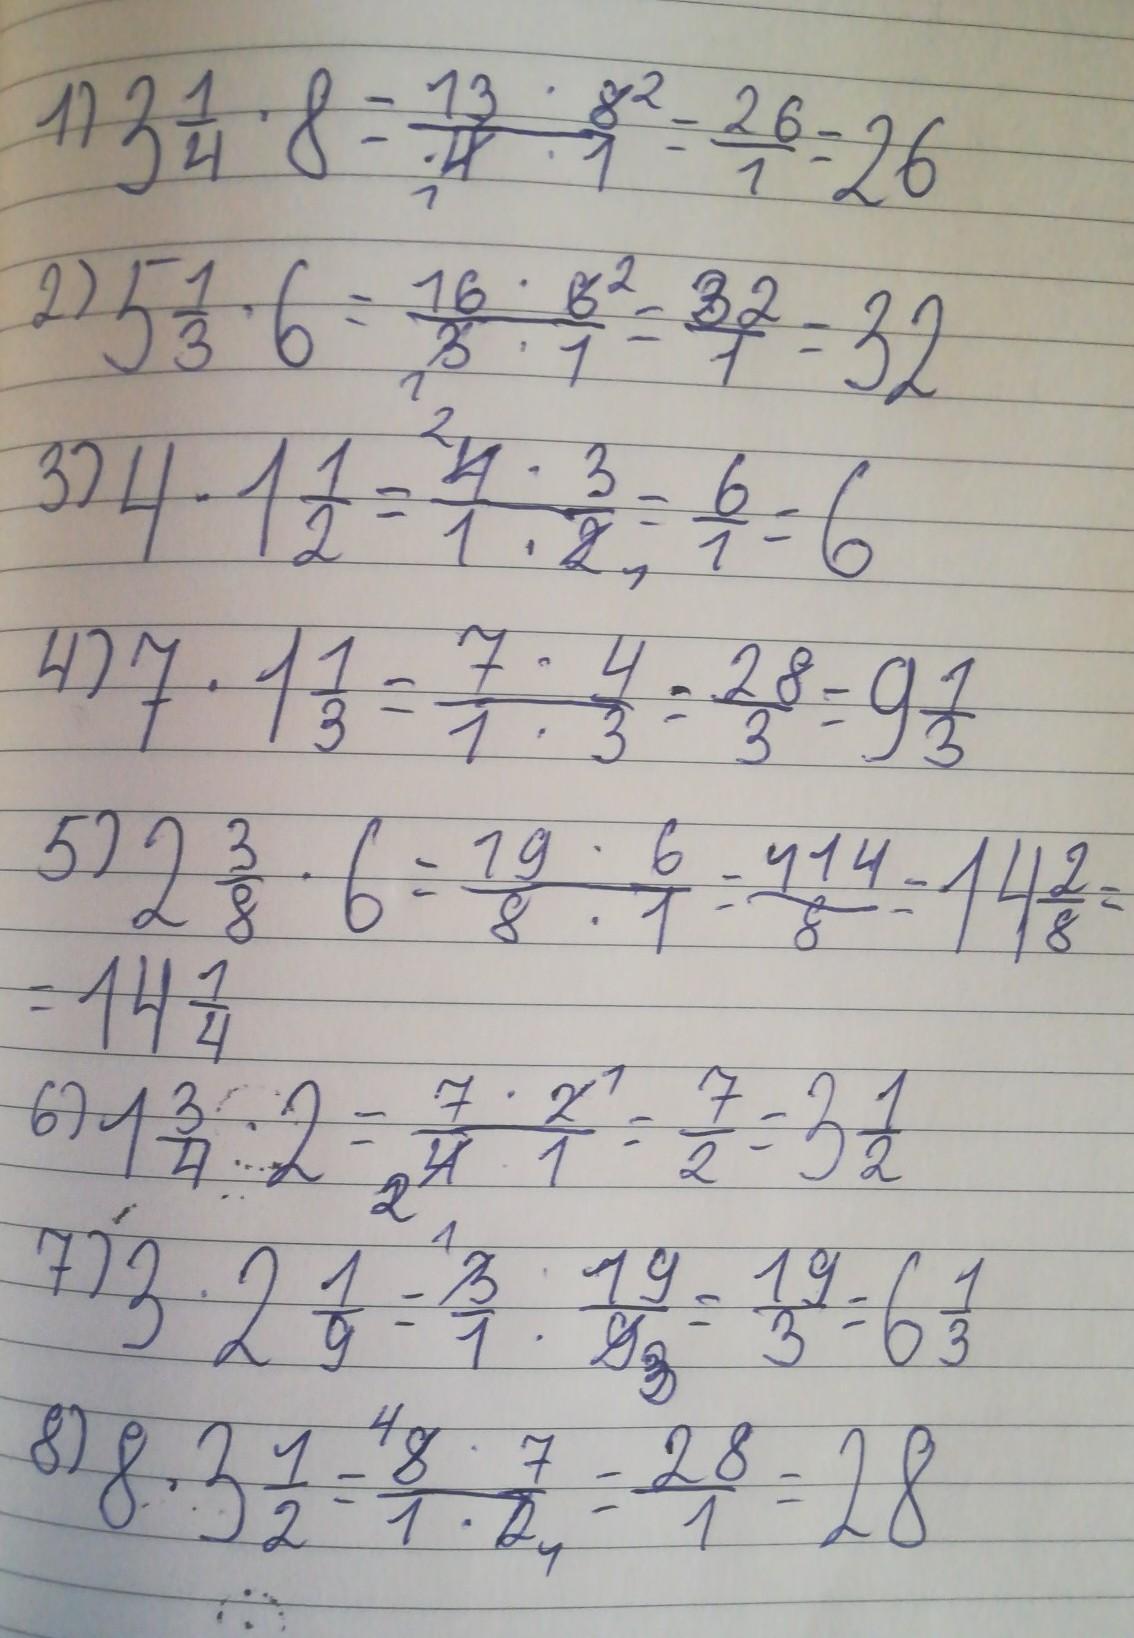 1) 3 1/4 · 8 = 13 · 8² / 4 · 1 = 26/1 = 26
1
2) 5 1/3 · 6 = 16 · 6² / 3 · 1 = 32/1 = 32
1
2
3) 4 · 1 1/2 = 4 · 3 / 1 · 2 = 6/1 = 6
1
4) 7 · 1 1/3 = 7 · 4 / 1 · 3 = 28/3 = 9 1/3
5) 2 3/8 · 6 = 19 · 6 / 8 · 1 = 114/8 = 14 2/8 =
= 14 1/4
6) 1 3/4 · 2 = 7 · 2¹ / 4 1 = 7/2 = 3 1/2
2
1
7) 3 · 2 1/9 = 3/1 · 19/9 = 19/3 = 6 1/3
3
4
8) 8 · 3 1/2 = 8 · 7 / 1 · 2 = 28/1 = 28
1